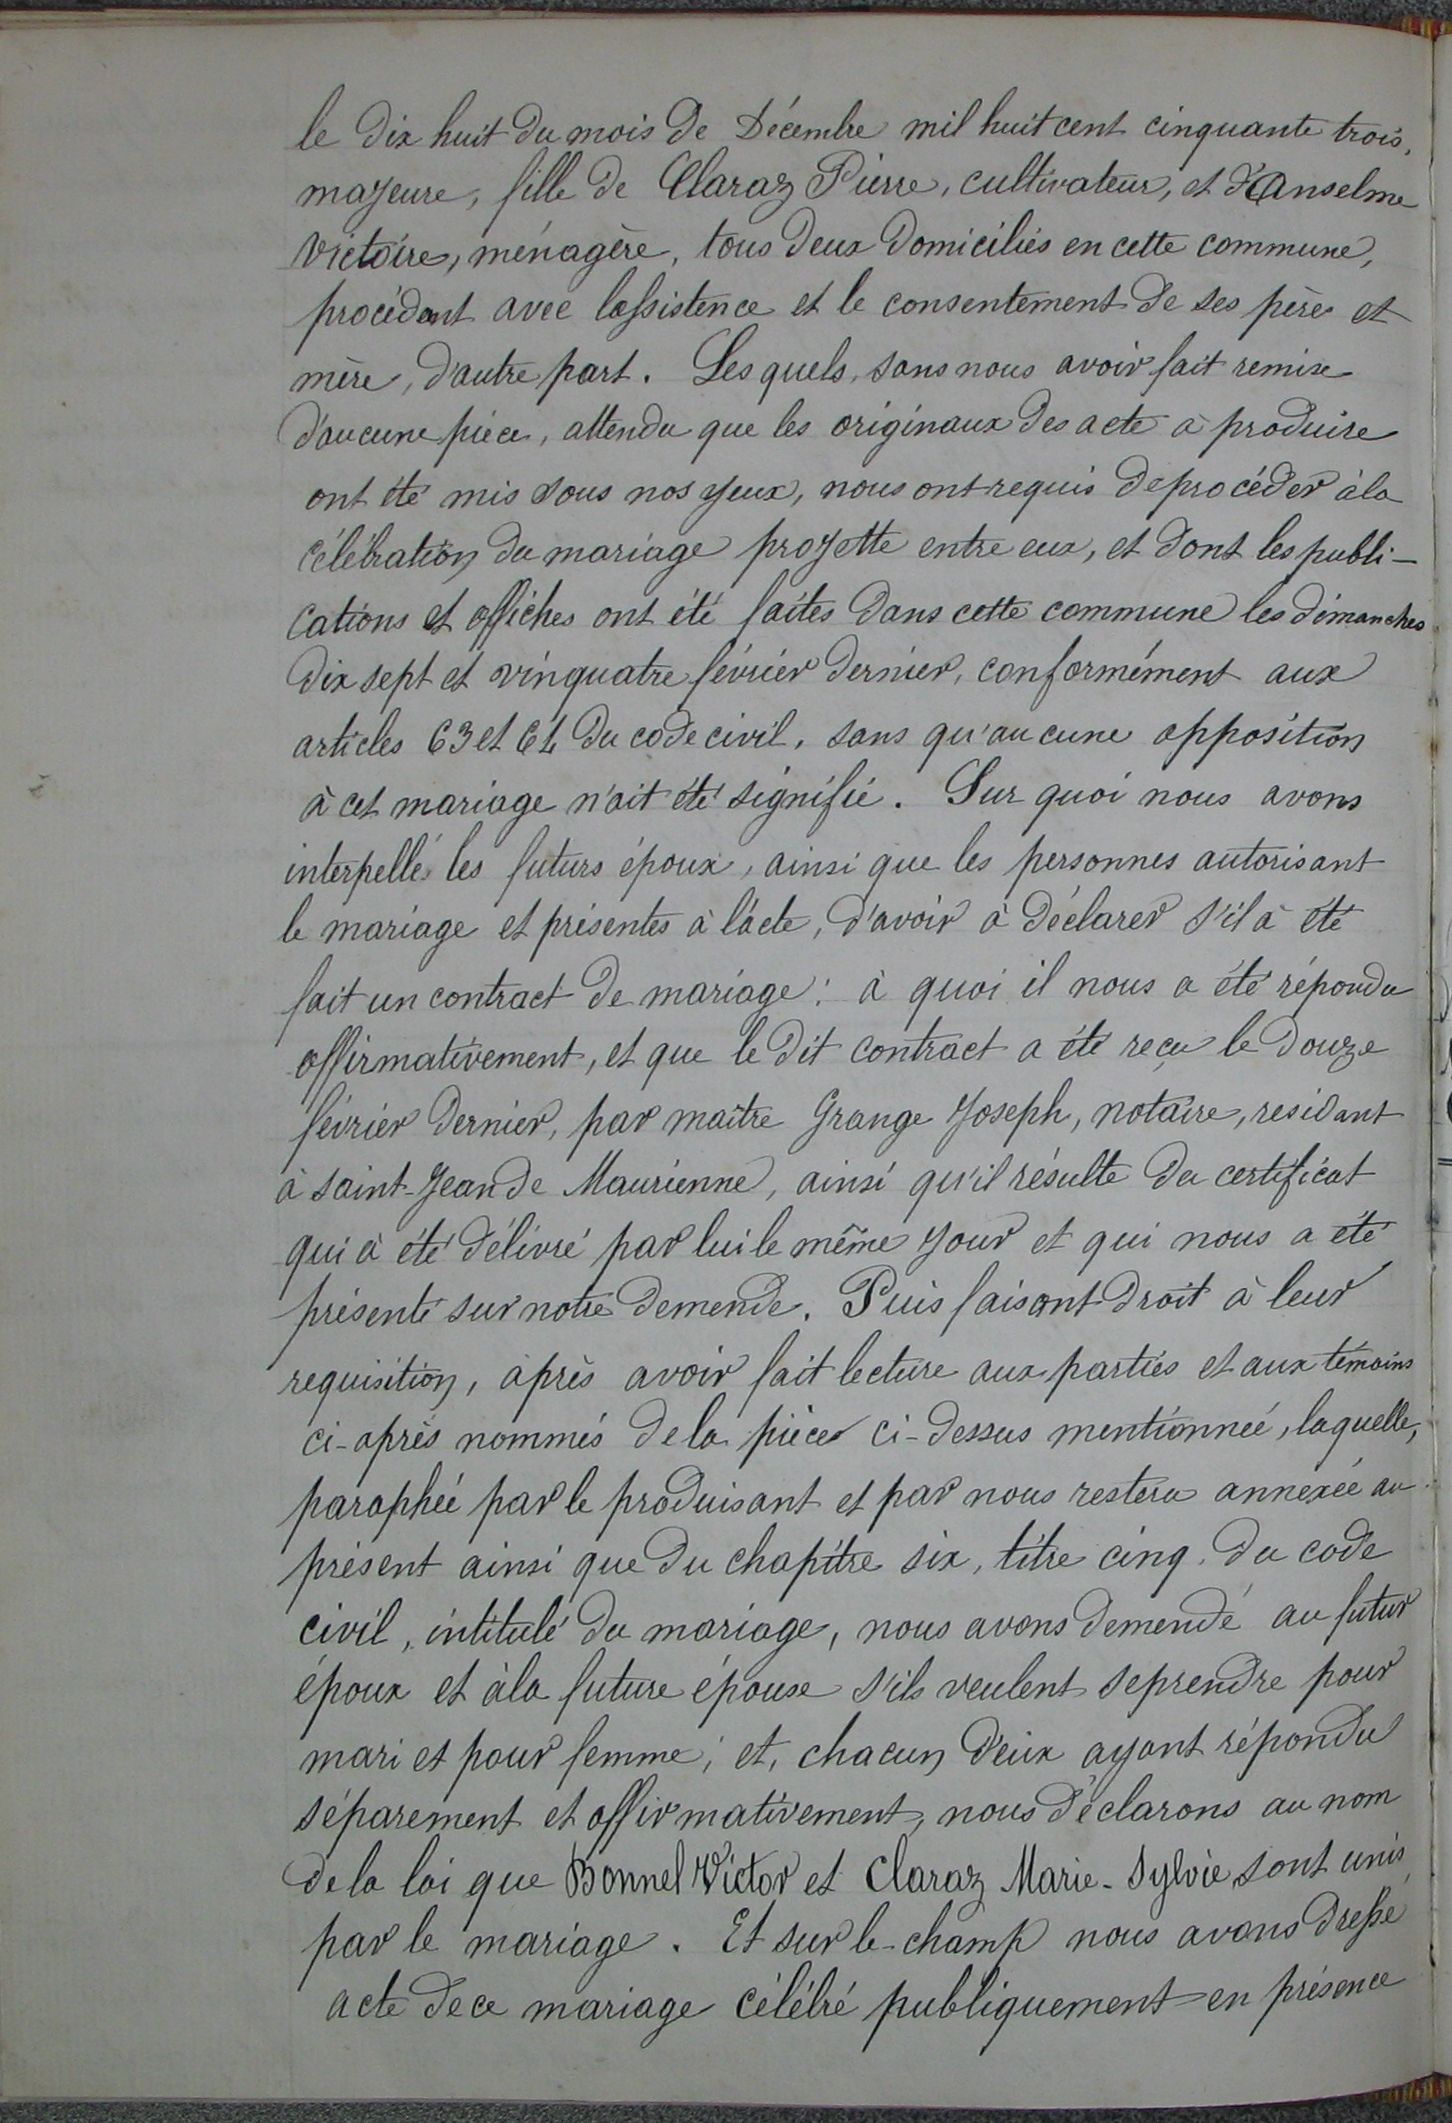 le dix huit du mois de Décembre mil huit cent cinquante trois,
majeure, fille de Claraz Pierre, cultivateur, et d'Anselme
Victoire, ménagère, tous deux domiciliés en cette commune,
procédant avec l'assistence et le consentement de ses père et
mère, d'autre part. Les quels, sans nous avoir fait remise
d'aucune pièce, attendu que les originaux des acte à produire
ont été mis sous nos yeux, nous ont requis de procéder à la
célébration du mariage projetté entre eux, et dont les publi-
cations et affiches ont été faites dans cette commune les dimanches
dix sept et vinquatre février dernier, conformément aux
articles 63 et 64 du code civil, sans qu'aucune opposition
à cet mariage n'ait été signifié. Sur quoi nous avons
interpellé les futurs époux, ainsi que les personnes autorisant
le mariage et présentes à l'acte, d'avoir à déclarer s'il à été
fait un contract de mariage : à quoi il nous a été répondu
affirmativement, et que le dit contract a été reçu le douze
février dernier, par maître Grange Joseph, notaire, residant
à saint-Jean de Maurienne, ainsi qu'il résulte du certificat
qui à été délivré par lui le même jour et qui nous a été
présenté sur notre demende. Puis faisant droit à leur
requisition, après avoir fait lecture aux parties et aux témoins
ci-après nommés de la pièce ci-dessus mentionnée, laquelle,
paraphée par le produisant et par nous restera annexée au
présent ainsi que du chapitre six, titre cinq du code
civil, intitulé du mariage, nous avons demendé au futur
époux et à la future épouse s'ils veulent se prendre pour
mari et pour femme; et, chacun d'eux ayant répondu
séparement et affirmativement, nous déclarons au nom
de la loi que Bonnel Victor et Claraz Marie-Sylvie sont unis
par le mariage. Et sur le-champ nous avons dressé
acte de ce mariage célébré publiquement en présence